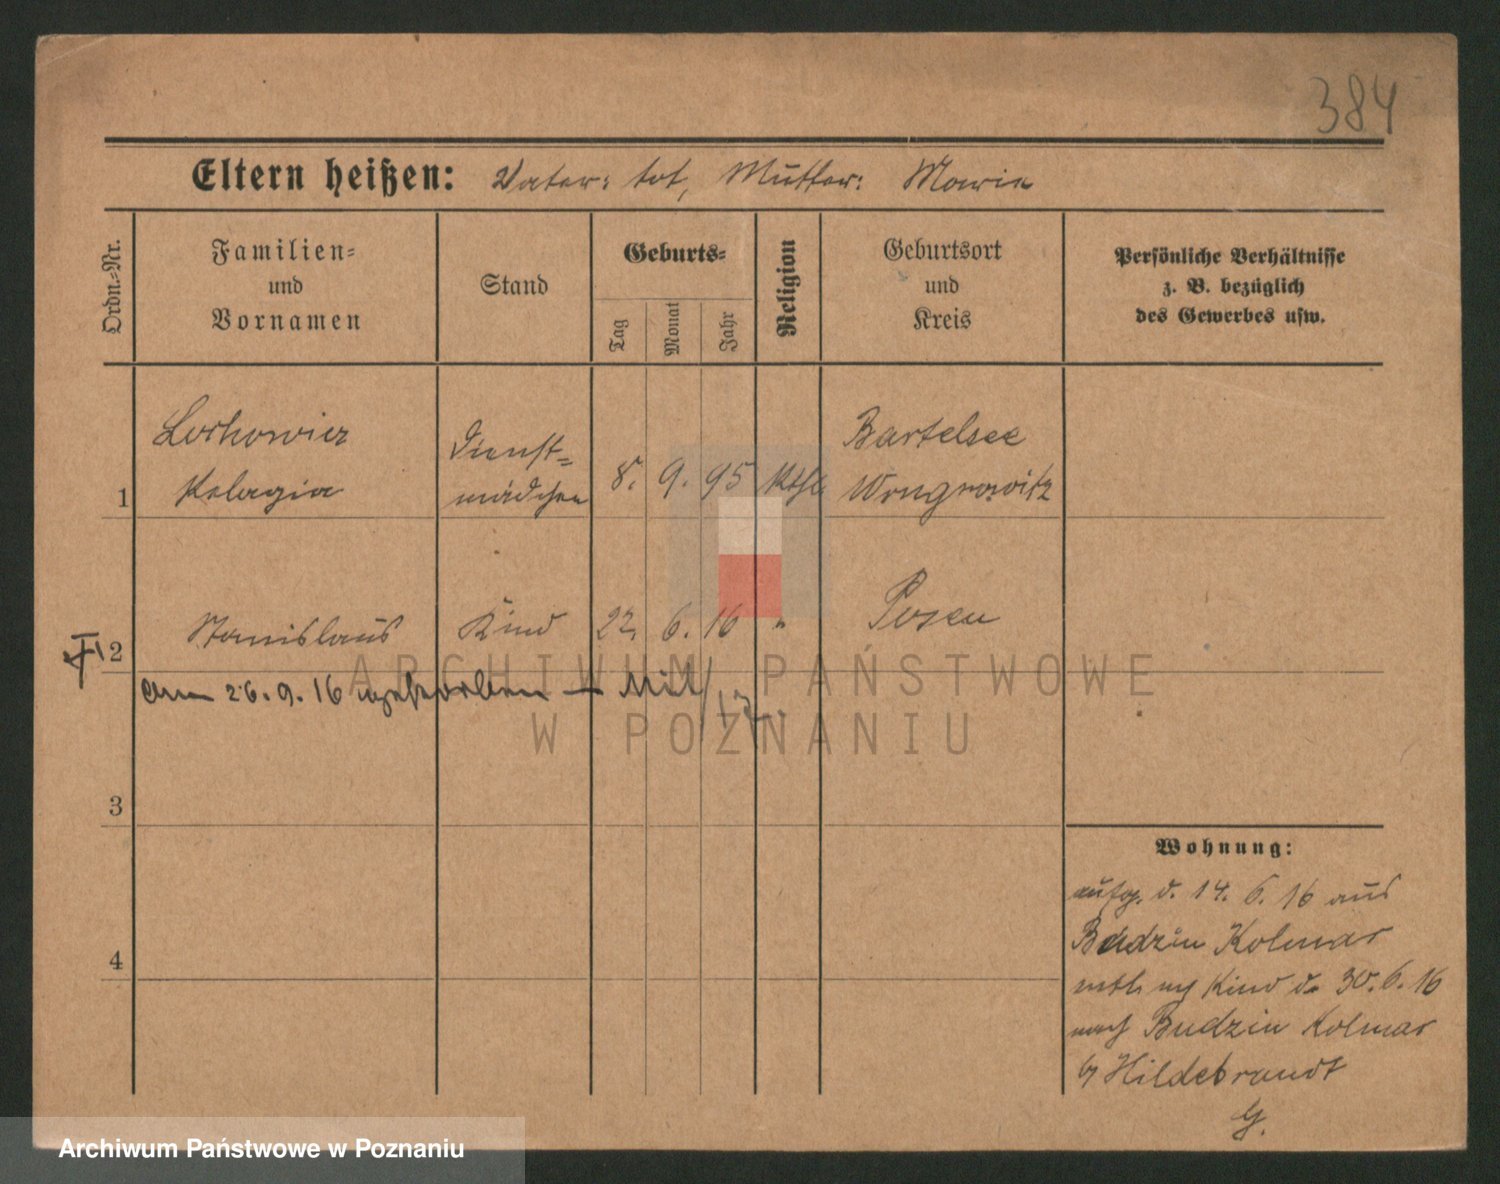 384
Eltern heißen: Vater: tot, Mutter: Maria
Ordn.-Nr.
Familien-
und
Vornamen
Stand
Geburts-
Tag
Monat
Jahr
Religion
Geburtsort
und
Kreis
Persönliche Verhältnisse
z. B. bezüglich
des Gewerbes usw.
Dienst-
Bartelsee
1 Pelagia mädchen 8. 9. 95 kthl. Wongrowitz
2 Stanislaus Kind 22. 6. 16 " Posen
am 26.9.16 gestorben
ARCHIWUM PAŃSTWOWE
W POZNANIU
3
4
Wohnung:
aufg. d. 14. 6. 16 aus
Budzin Kolmar
Kind d. 30. 6. 16
nach Budzin Kolmar
b/ Hildebrandt
G.
Archiwum Państwowe w Poznaniu